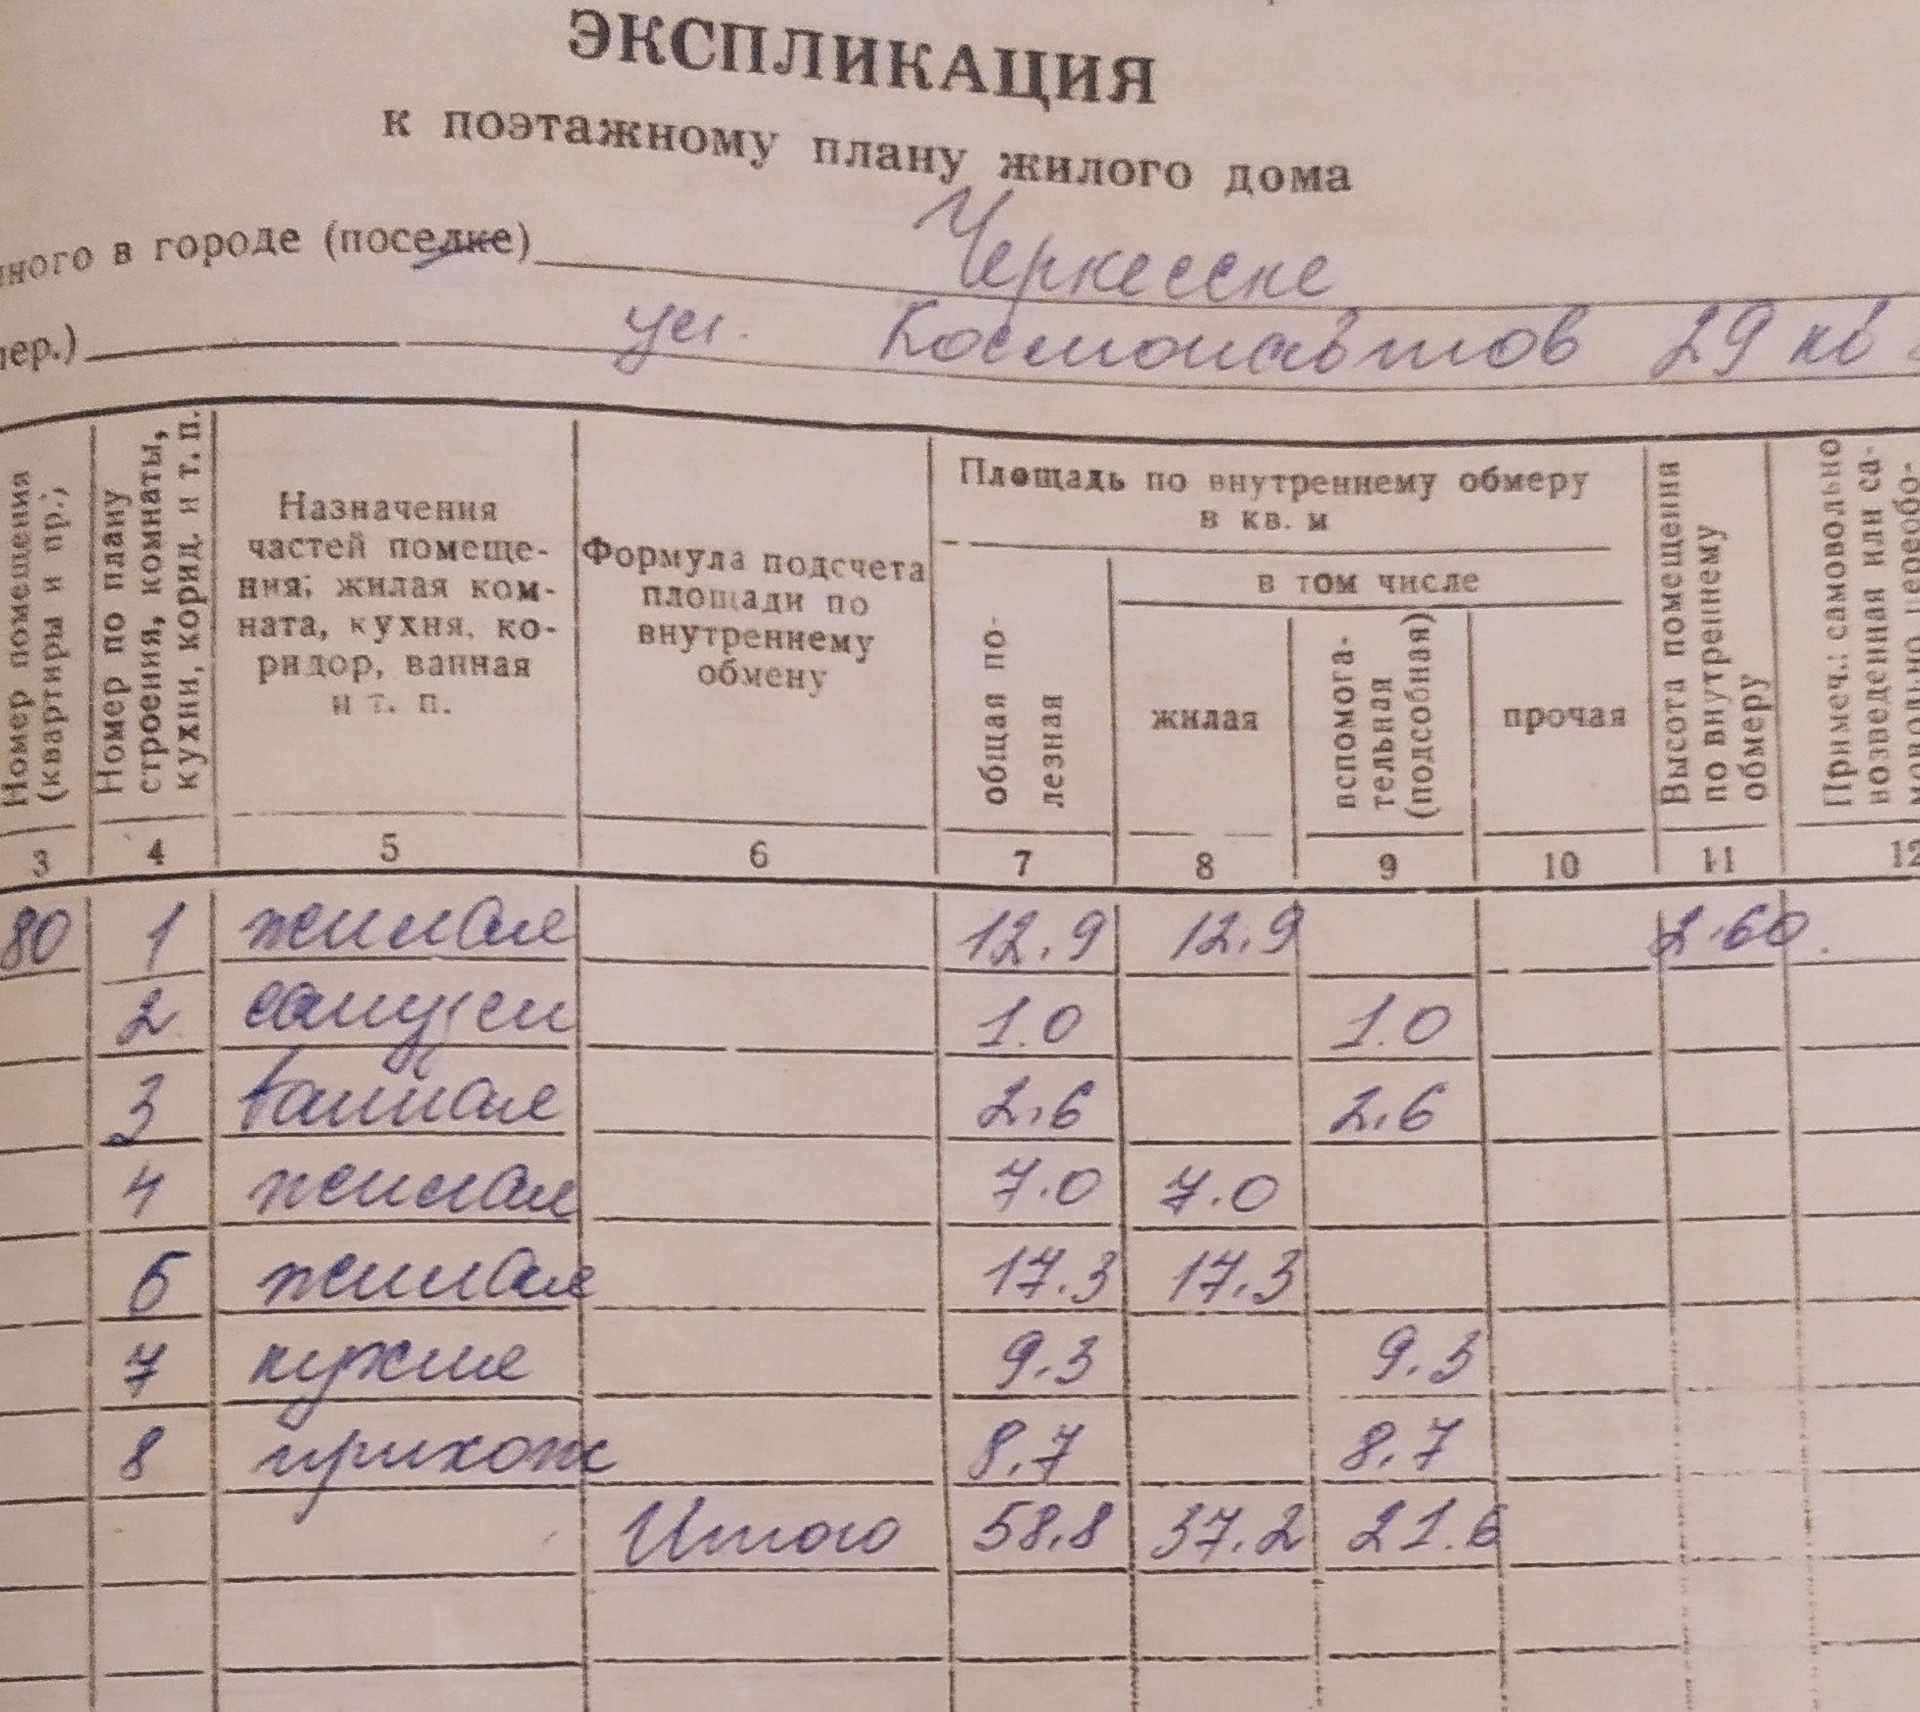 ЭКСПЛИКАЦИЯ
к поэтажному плану жилого дома
нного в городе (поселке) Черкесске
пер.) ул. Космонавтов 29 кв
Номер помещения (квартиры и пр.)
Номер по плану строения, комнаты, кухни, корид. и т. п.
Назначения
частей помеще-
ния; жилая ком-
ната, кухня, ко-
ридор, ванная
и т. п.
Формула подсчета
площади по
внутреннему
обмену
Площадь по внутреннему обмеру
в кв. м
общая по-
лезная
в том числе
жилая
вспомога-
тельная
(подсобная)
прочая
Высота помещения
по внутреннему
обмеру
Примеч.: самовольно
возведенная или са-
мовольно переобо-
3 4 5 6 7 8 9 10 11 12
80 1 жилая 12.9 12.9 2.60
2 санузел 1.0 1.0
3 ванная 2.6 2.6
4 жилая 7.0 7.0
6 жилая 17.3 17.3
7 кухня 9.3 9.3
8 прихож 8.7 8.7
Итого 58.8 37.2 21.6